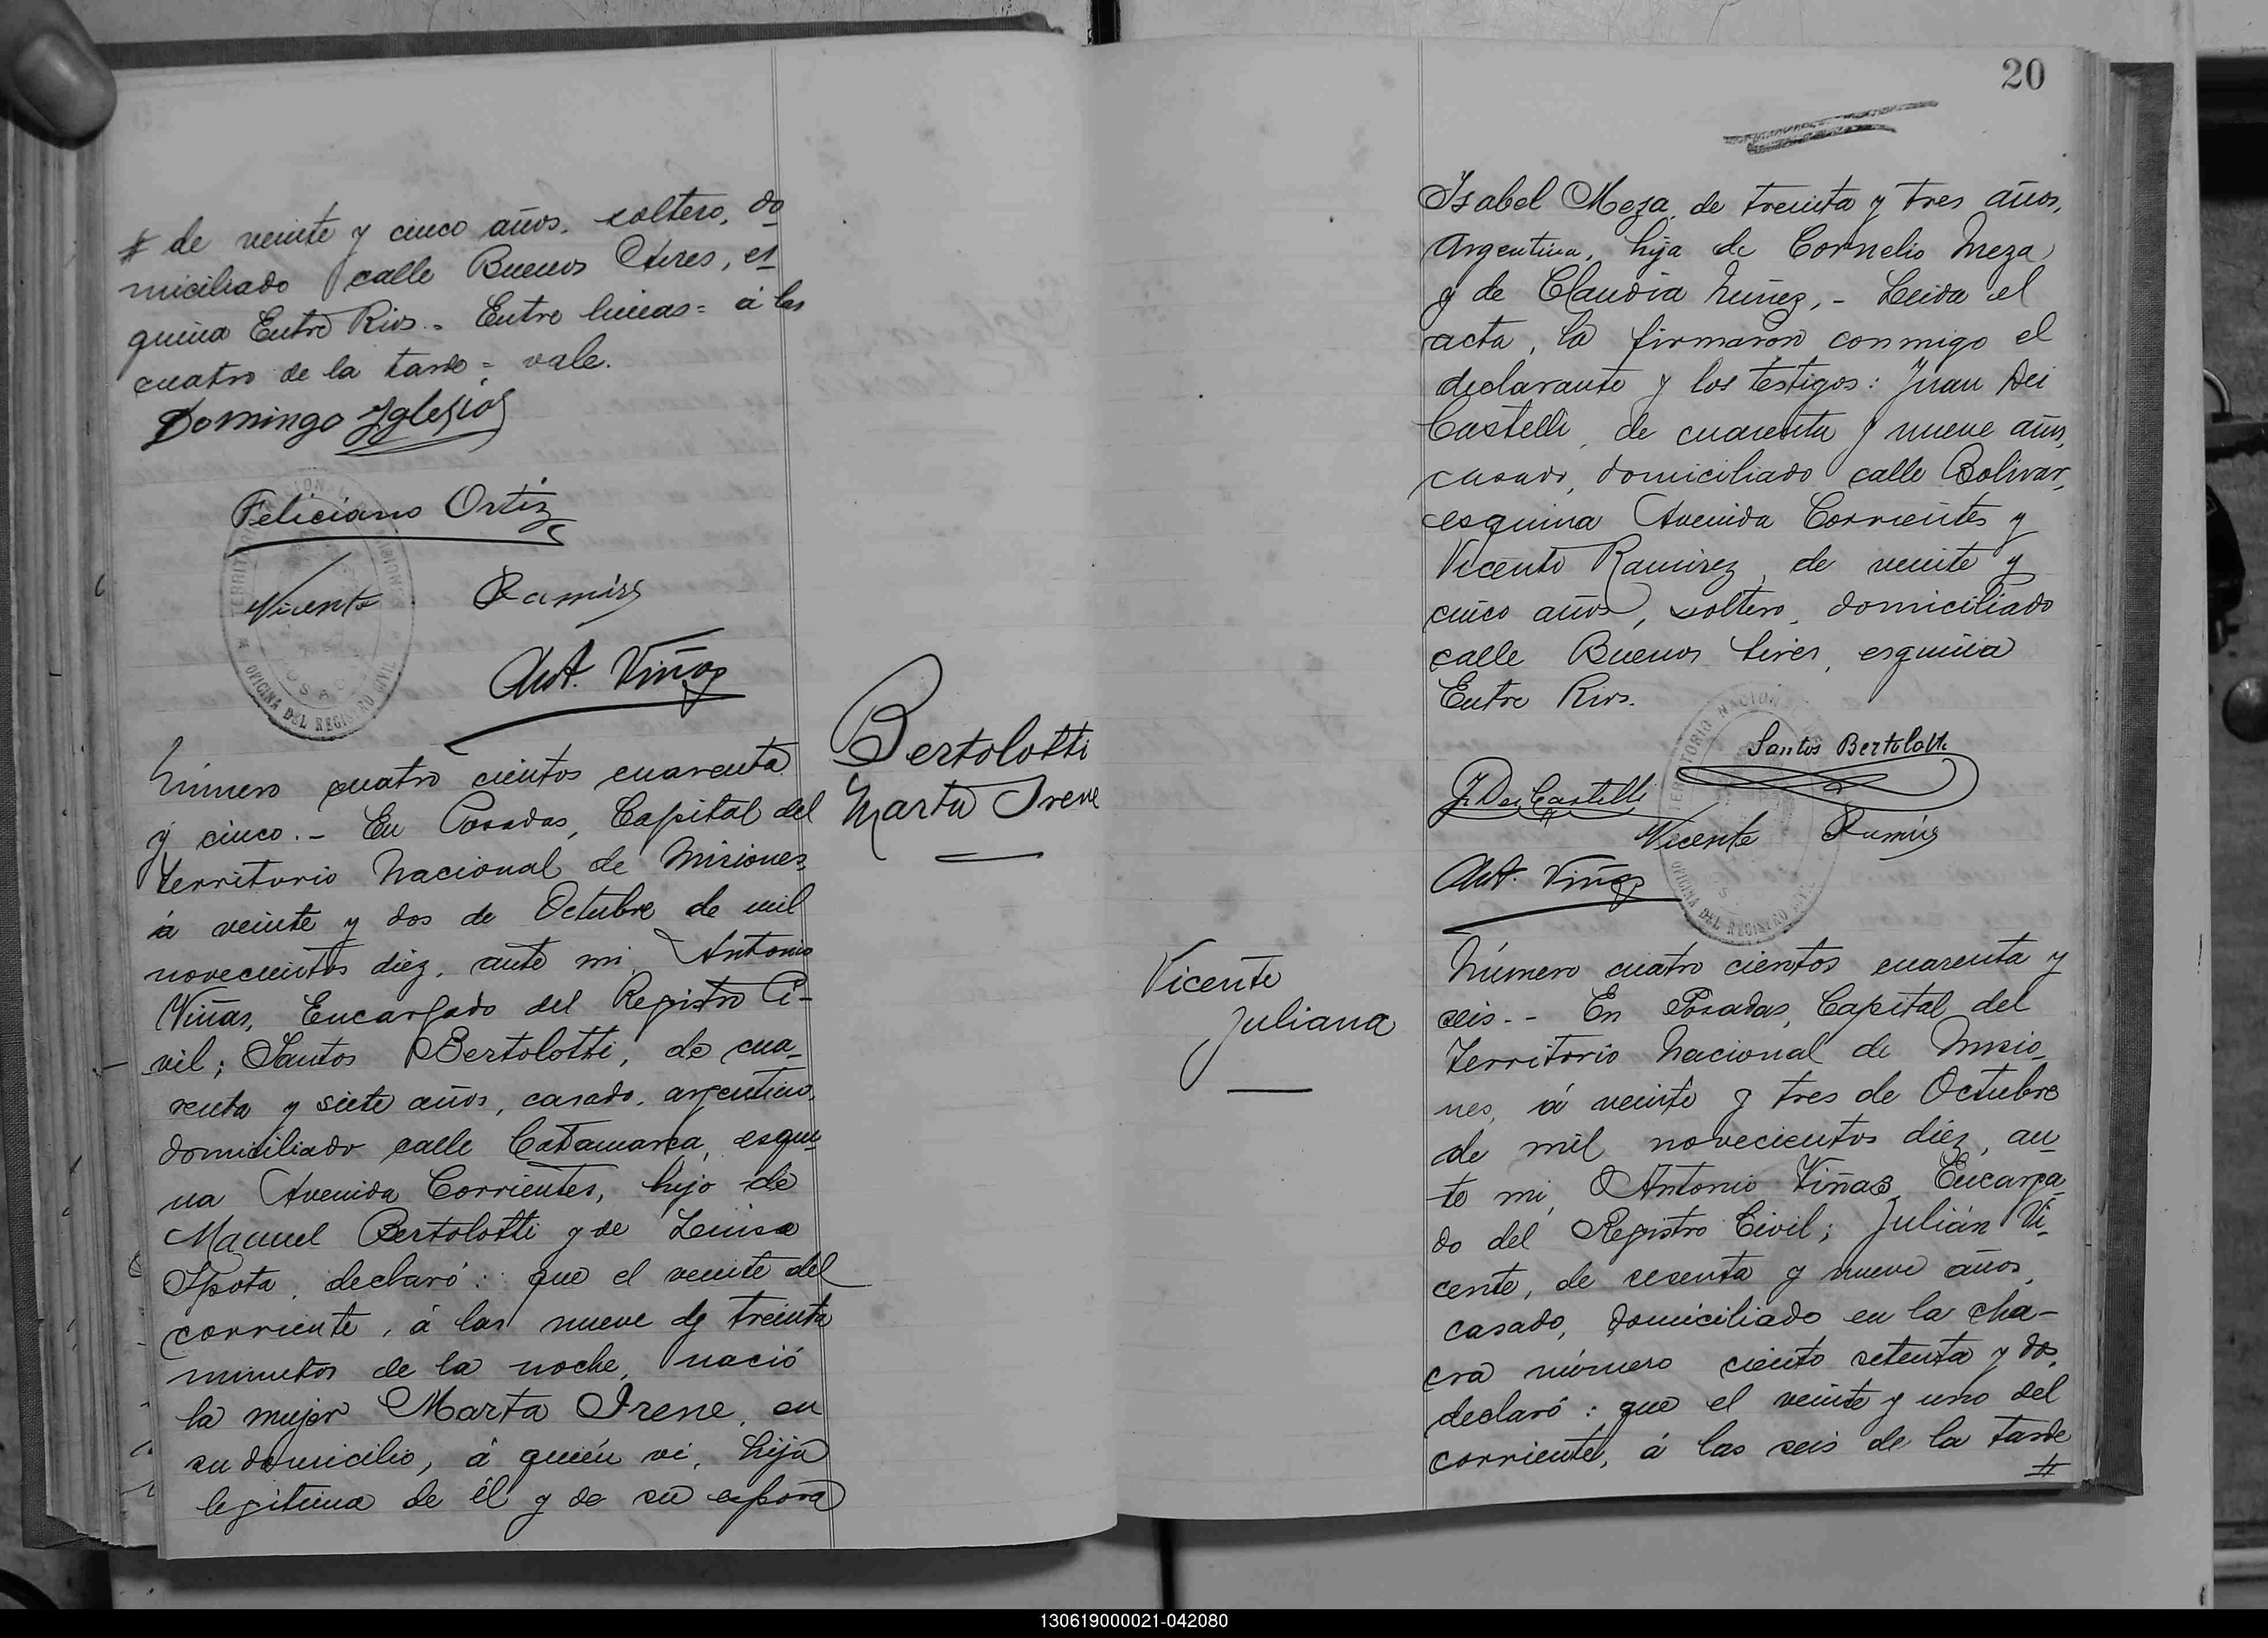 # de veinte y cinco años, soltero, do
miciliado calle Buenos Aires, es
quina Entre Rios.- Entre lineas = á las
cuatro de la tarde = vale.
Domingo Yglesias
Feliciano Ortiz
Vicente Ramirez
Ant. Viñas
OFICINA DEL REGISTRO CIVIL
Bertolotti
Marta Irene
Número cuatro cientos cuarenta
y cinco.- En Posadas, Capital del
Territorio Nacional de Misiones
á veinte y dos de Octubre de mil
novecientos diez, ante mi, Antonio
Viñas, Encargado del Registro Ci-
vil; Santos Bertolotti, de cua-
renta y siete años, casado, argentino,
domiciliado calle Catamarca, esqui
na Avenida Corrientes, hijo de
Manuel Bertolotti y de Luisa
Spota, declaró: que el veinte del
corriente, á las nueve y treinta
minutos de la noche, nació
la mujer Marta Irene, en
su domicilio, á quién vi, hija
legitima de él y de su esposa
20
Isabel Meza, de treinta y tres años,
Argentina, hija de Cornelio Meza
y de Claudia Nuñez,- Leida el
acta, la firmaron conmigo el
declarante y los testigos: Juan Dei
Castelli, de cuarenta y nueve años,
casado, domiciliado calle Bolivar,
esquina Avenida Corrientes y
Vicente Ramirez, de veinte y
cinco años, soltero, domiciliado
calle Buenos Aires, esquina
Entre Rios.
Santos Bertolotti
J. Dei Castelli
Vicente Ramirez
Ant. Viñas
TERRITORIO NACIONAL
OFICINA DEL REGISTRO CIVIL
Vicente
Juliana
Número cuatro cientos cuarenta y
seis.-- En Posadas, Capital del
Territorio Nacional de Misio-
nes, á veinte y tres de Octubre
de mil novecientos diez, an
te mi, Antonio Viñas, Encarga
do del Registro Civil; Julián Vi-
cente, de sesenta y nueve años,
casado, domiciliado en la cha-
cra número ciento setenta y dos,
declaró: que el veinte y uno del
corriente, á las seis de la tarde
#
130619000021-042080